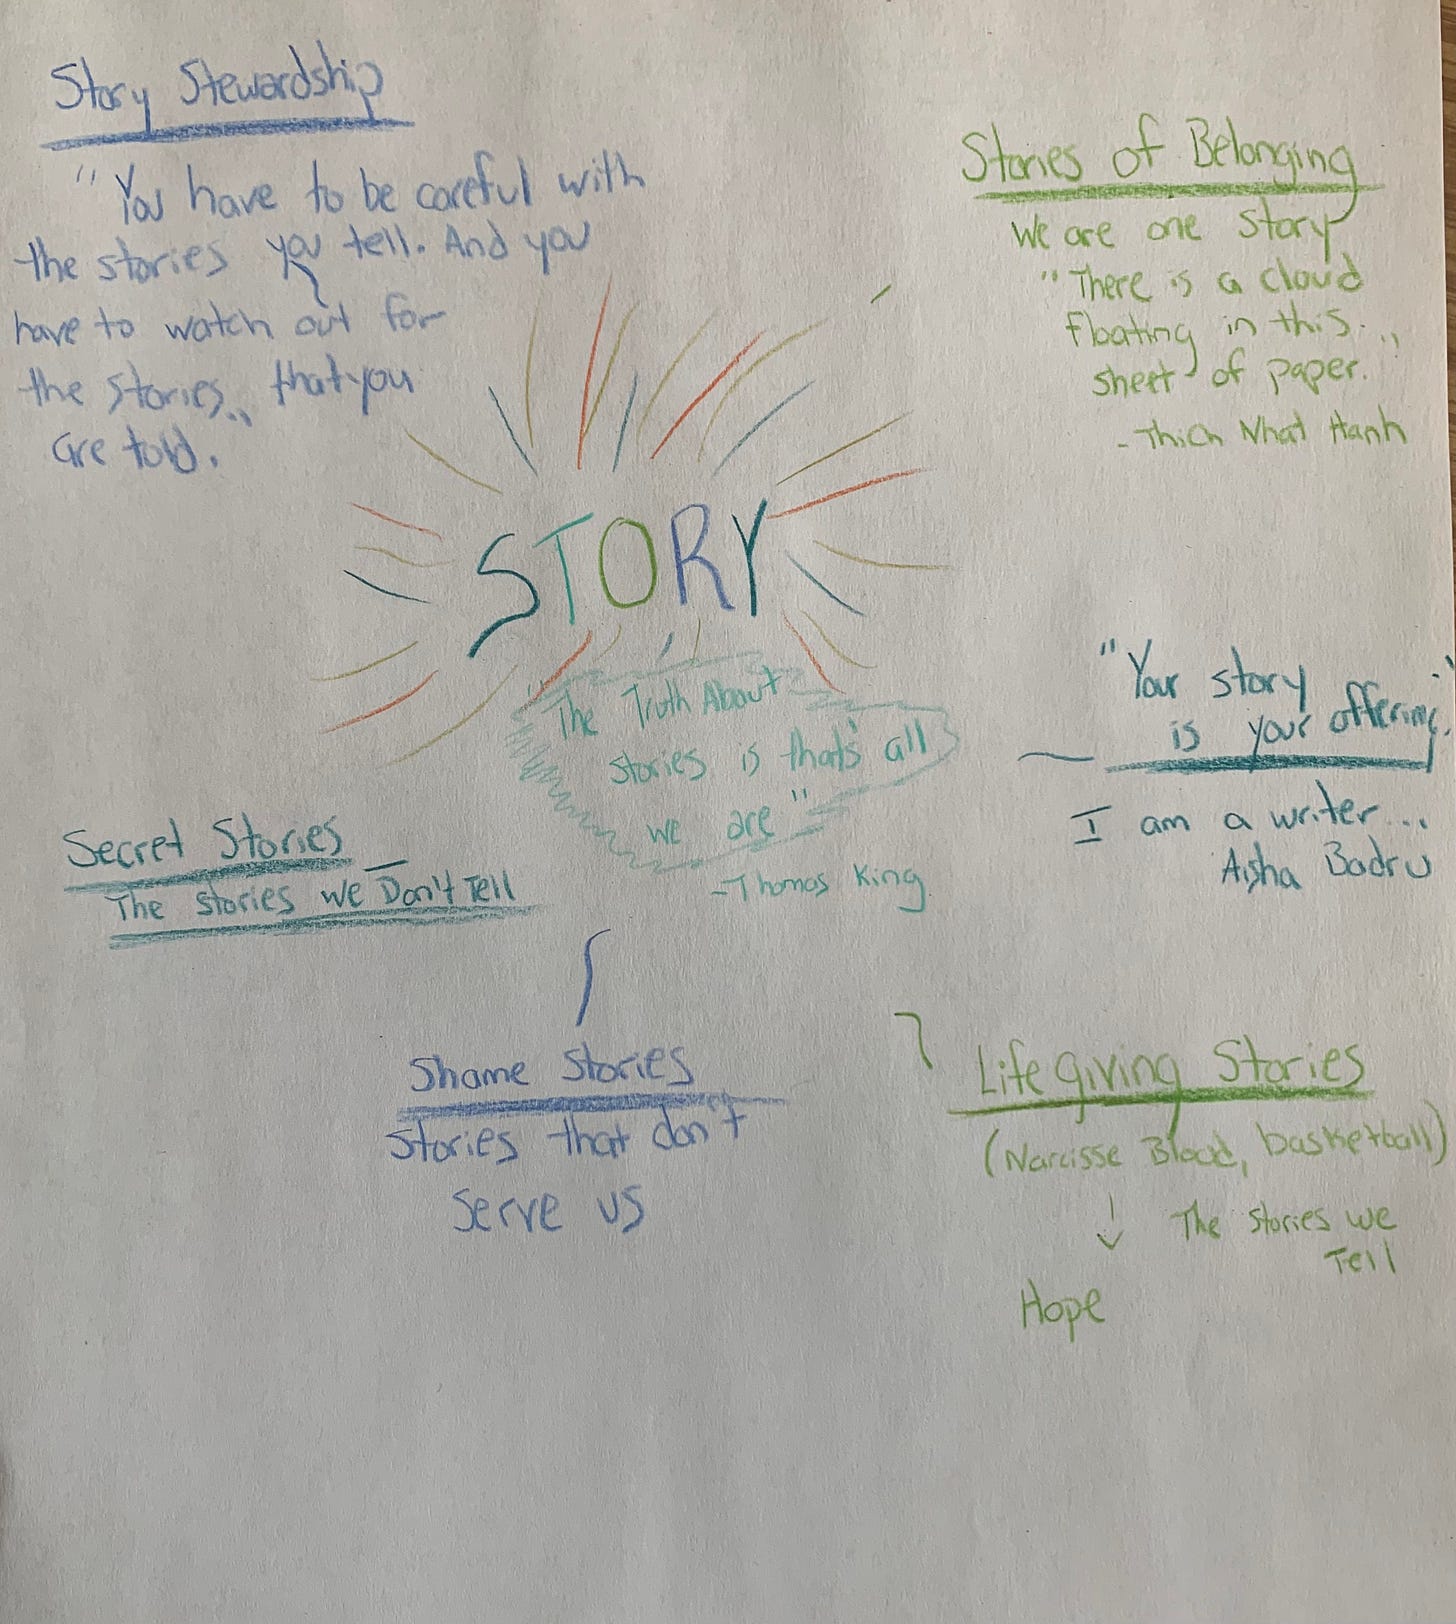 Story Stewardship
"You have to be careful with
the stories you tell. And you
have to watch out for
the stories that you
are told."
Stories of Belonging
We are one story
"There is a cloud
floating in this
sheet of paper."
- Thich Nhat Hanh
STORY
"The Truth About
stories is that's all
we are"
- Thomas King
"Your story
is your offering."
I am a writer...
Aisha Badru
Secret Stories
The stories we Don't Tell
Shame Stories
Stories that don't
serve us
Life giving Stories
(Narcisse Blood, basketball)
The stories we
Tell
Hope